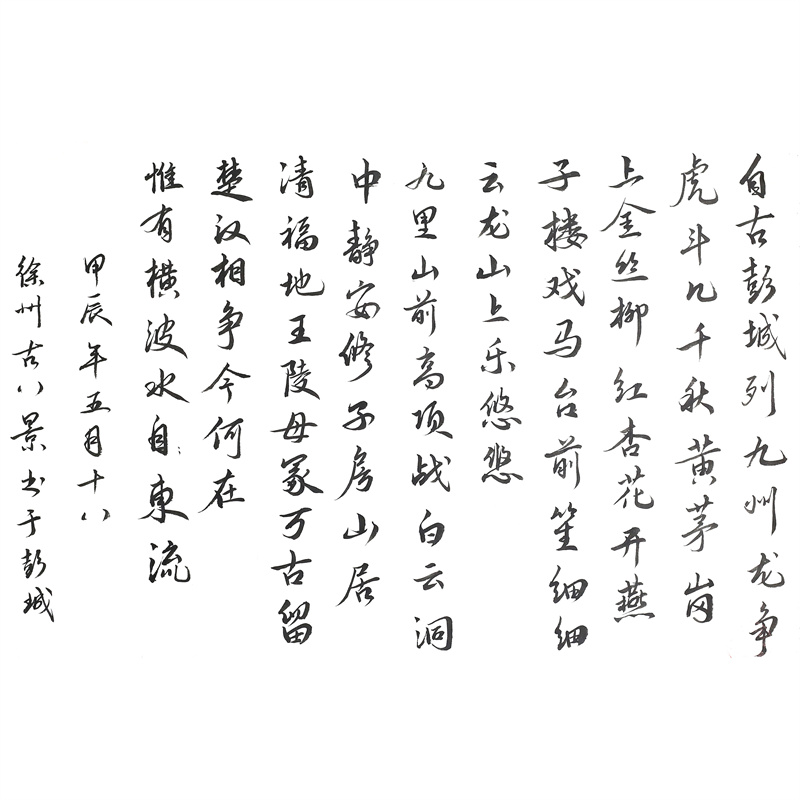 自古彭城列九州龙争
虎斗几千秋黄茅岗
上金丝柳红杏花开燕
子楼戏马台前笙细细
云龙山上乐悠悠
九里山前高项战白云洞
中静安修子房山居
清福地王陵母冢万古留
楚汉相争今何在
惟有横波水自:东流
甲辰年五月十八
徐州古八景书于彭城